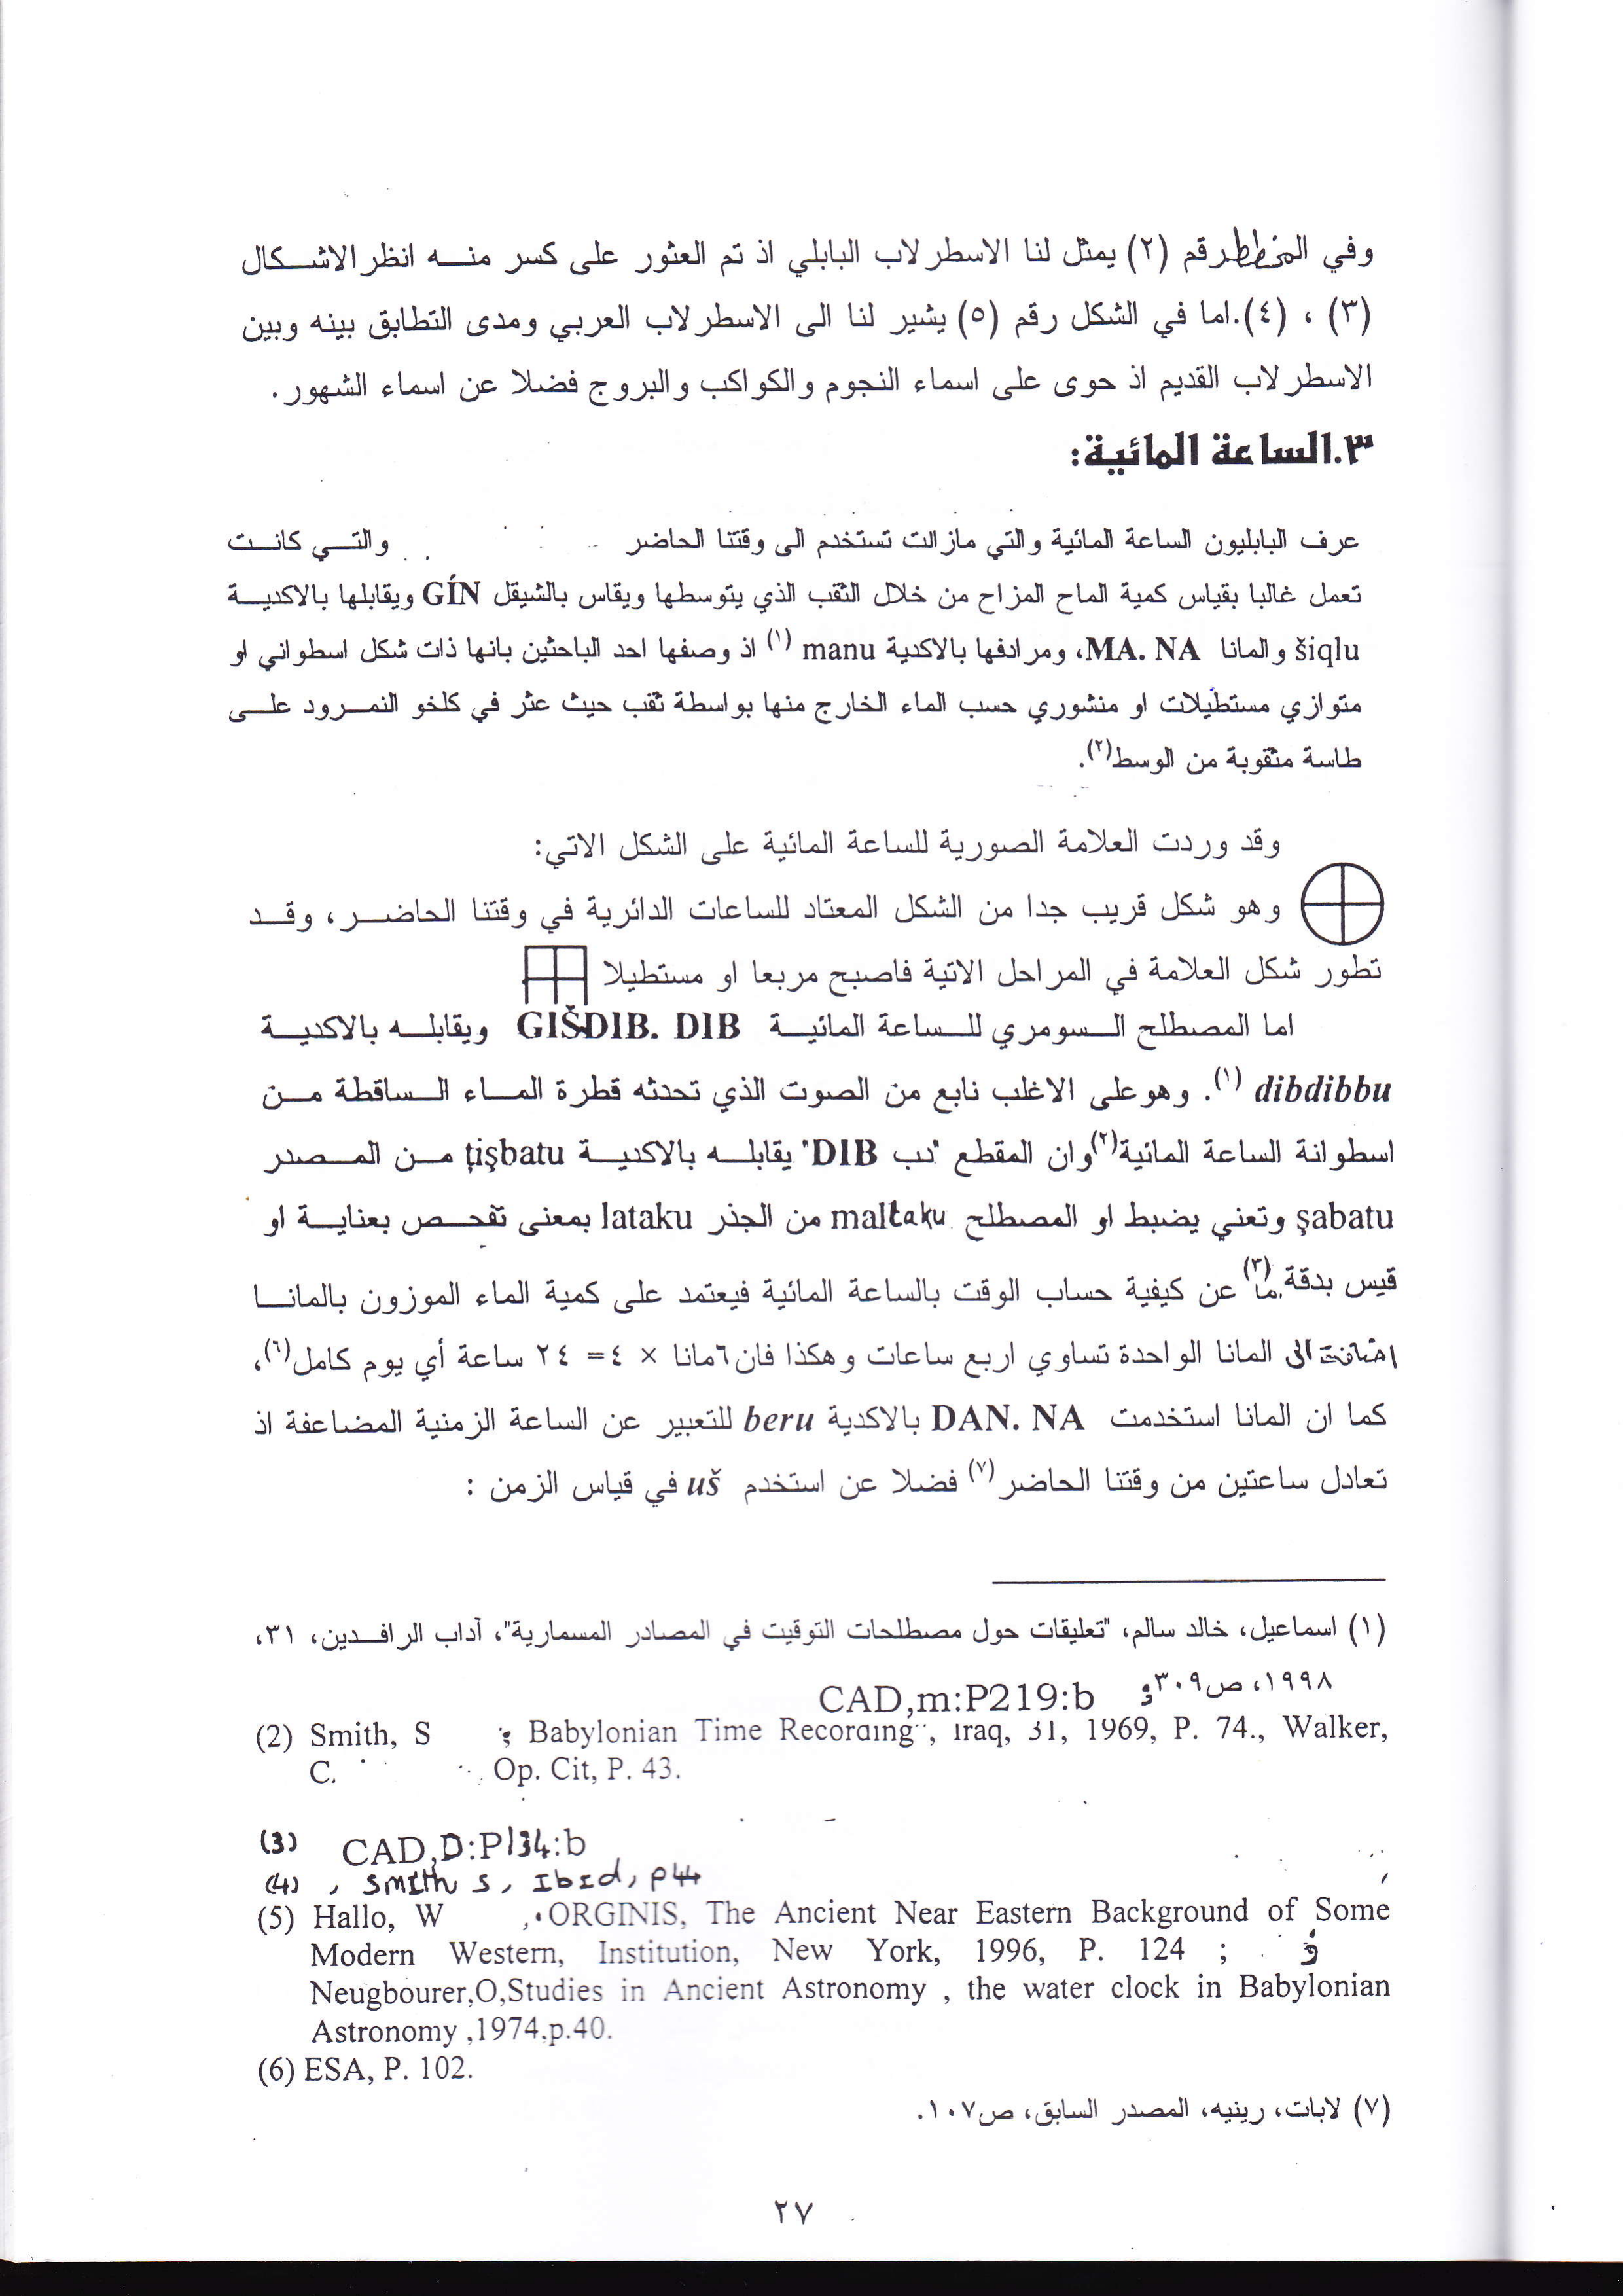 وفي المخطط رقم (٢) يمثل لنا الاسطرلاب البابلي اذ تم العثور على كسر منه انظر الاشكال
(٣) ، (٤).اما في الشكل رقم (٥) يشير لنا الى الاسطرلاب العربي ومدى التطابق بينه وبين
الاسطرلاب القديم اذ حوى على اسماء النجوم والكواكب والبروج فضلا عن اسماء الشهور.
٣.الساعة المائية:
عرف البابليون الساعة المائية والتي مازالت تستخدم الى وقتنا الحاضر والتي كانت
تعمل غالبا بقياس كمية الماح المزاح من خلال الثقب الذي يتوسطها ويقاس بالشيقل GÍN ويقابلها بالاكدية
šiqlu والمانا MA. NA، ومرادفها بالاكدية manu (١) اذ وصفها احد الباحثين بانها ذات شكل اسطواني او
متوازي مستطيلات او منشوري حسب الماء الخارج منها بواسطة ثقب حيث عثر في كلخو النمرود على
طاسة مثقوبة من الوسط(٢).
وقد وردت العلامة الصورية للساعة المائية على الشكل الاتي:
وهو شكل قريب جدا من الشكل المعتاد للساعات الدائرية في وقتنا الحاضر، وقد
تطور شكل العلامة في المراحل الاتية فاصبح مربعا او مستطيلا
اما المصطلح السومري للساعة المائية GIŠDIB. DIB ويقابله بالاكدية
dibdibbu (١). وهوعلى الاغلب نابع من الصوت الذي تحدثه قطرة الماء الساقطة من
اسطوانة الساعة المائية(٢)وان المقطع "دب DIB" يقابله بالاكدية ţişbatu من المصدر
şabatu وتعني يضبط او المصطلح maltaku من الجذر lataku بمعنى تفحص بعناية او
قيس بدقة(٣).ما عن كيفية حساب الوقت بالساعة المائية فيعتمد على كمية الماء الموزون بالمانا
اضافت الى المانا الواحدة تساوي اربع ساعات وهكذا فان٦مانا × ٤= ٢٤ ساعة أي يوم كامل(٦)،
كما ان المانا استخدمت DAN. NA بالاكدية beru للتعبير عن الساعة الزمنية المضاعفة اذ
تعادل ساعتين من وقتنا الحاضر(٧) فضلا عن استخدم uš في قياس الزمن :
(١) اسماعيل، خالد سالم، "تعليقات حول مصطلحات التوقيت في المصادر المسمارية"، آداب الرافدين، ٣١،
١٩٩٨، ص٣٠٩و CAD,m:P219:b
(2) Smith, S ; Babylonian Time Recording", Iraq, 31, 1969, P. 74., Walker,
C. Op. Cit, P. 43.
(3) CAD,D:P134:b
(4) , Smith S, Ibid, P44
(5) Hallo, W ,.ORGINIS, The Ancient Near Eastern Background of Some
Modern Western, Institution, New York, 1996, P. 124 ; و
Neugbourer,O,Studies in Ancient Astronomy , the water clock in Babylonian
Astronomy ,1974,p.40.
(6) ESA, P. 102.
(٧) لابات، رينيه، المصدر السابق، ص١٠٧.
٢٧